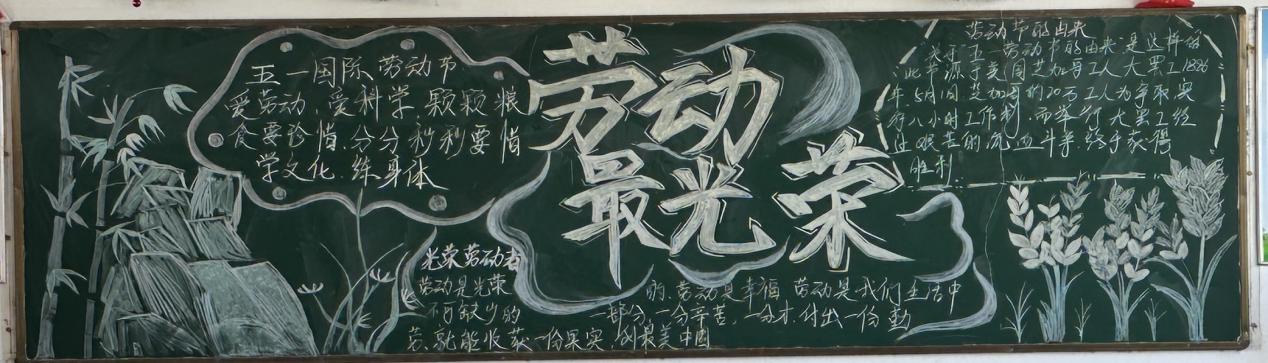 五一国际劳动节
爱劳动 爱科学.颗颗粮
食要珍惜.分分秒秒要惜
学文化.练身体
劳动
最光荣
劳动节的由来
关于五一劳动节的由来是这样的
此节源于美国芝加哥工人大罢工1886
年5月1日芝加哥的20万工人为争取实
行八小时工作制.而举行大罢工经
过艰苦的流血斗争.终于获得
胜利.
光荣劳动者
劳动是光荣
的.劳动是幸福 劳动是我们生活中
不可缺少的
一部分,一分辛苦,一分才.付出一份勤
劳.就能收获一份果实.创最美中国